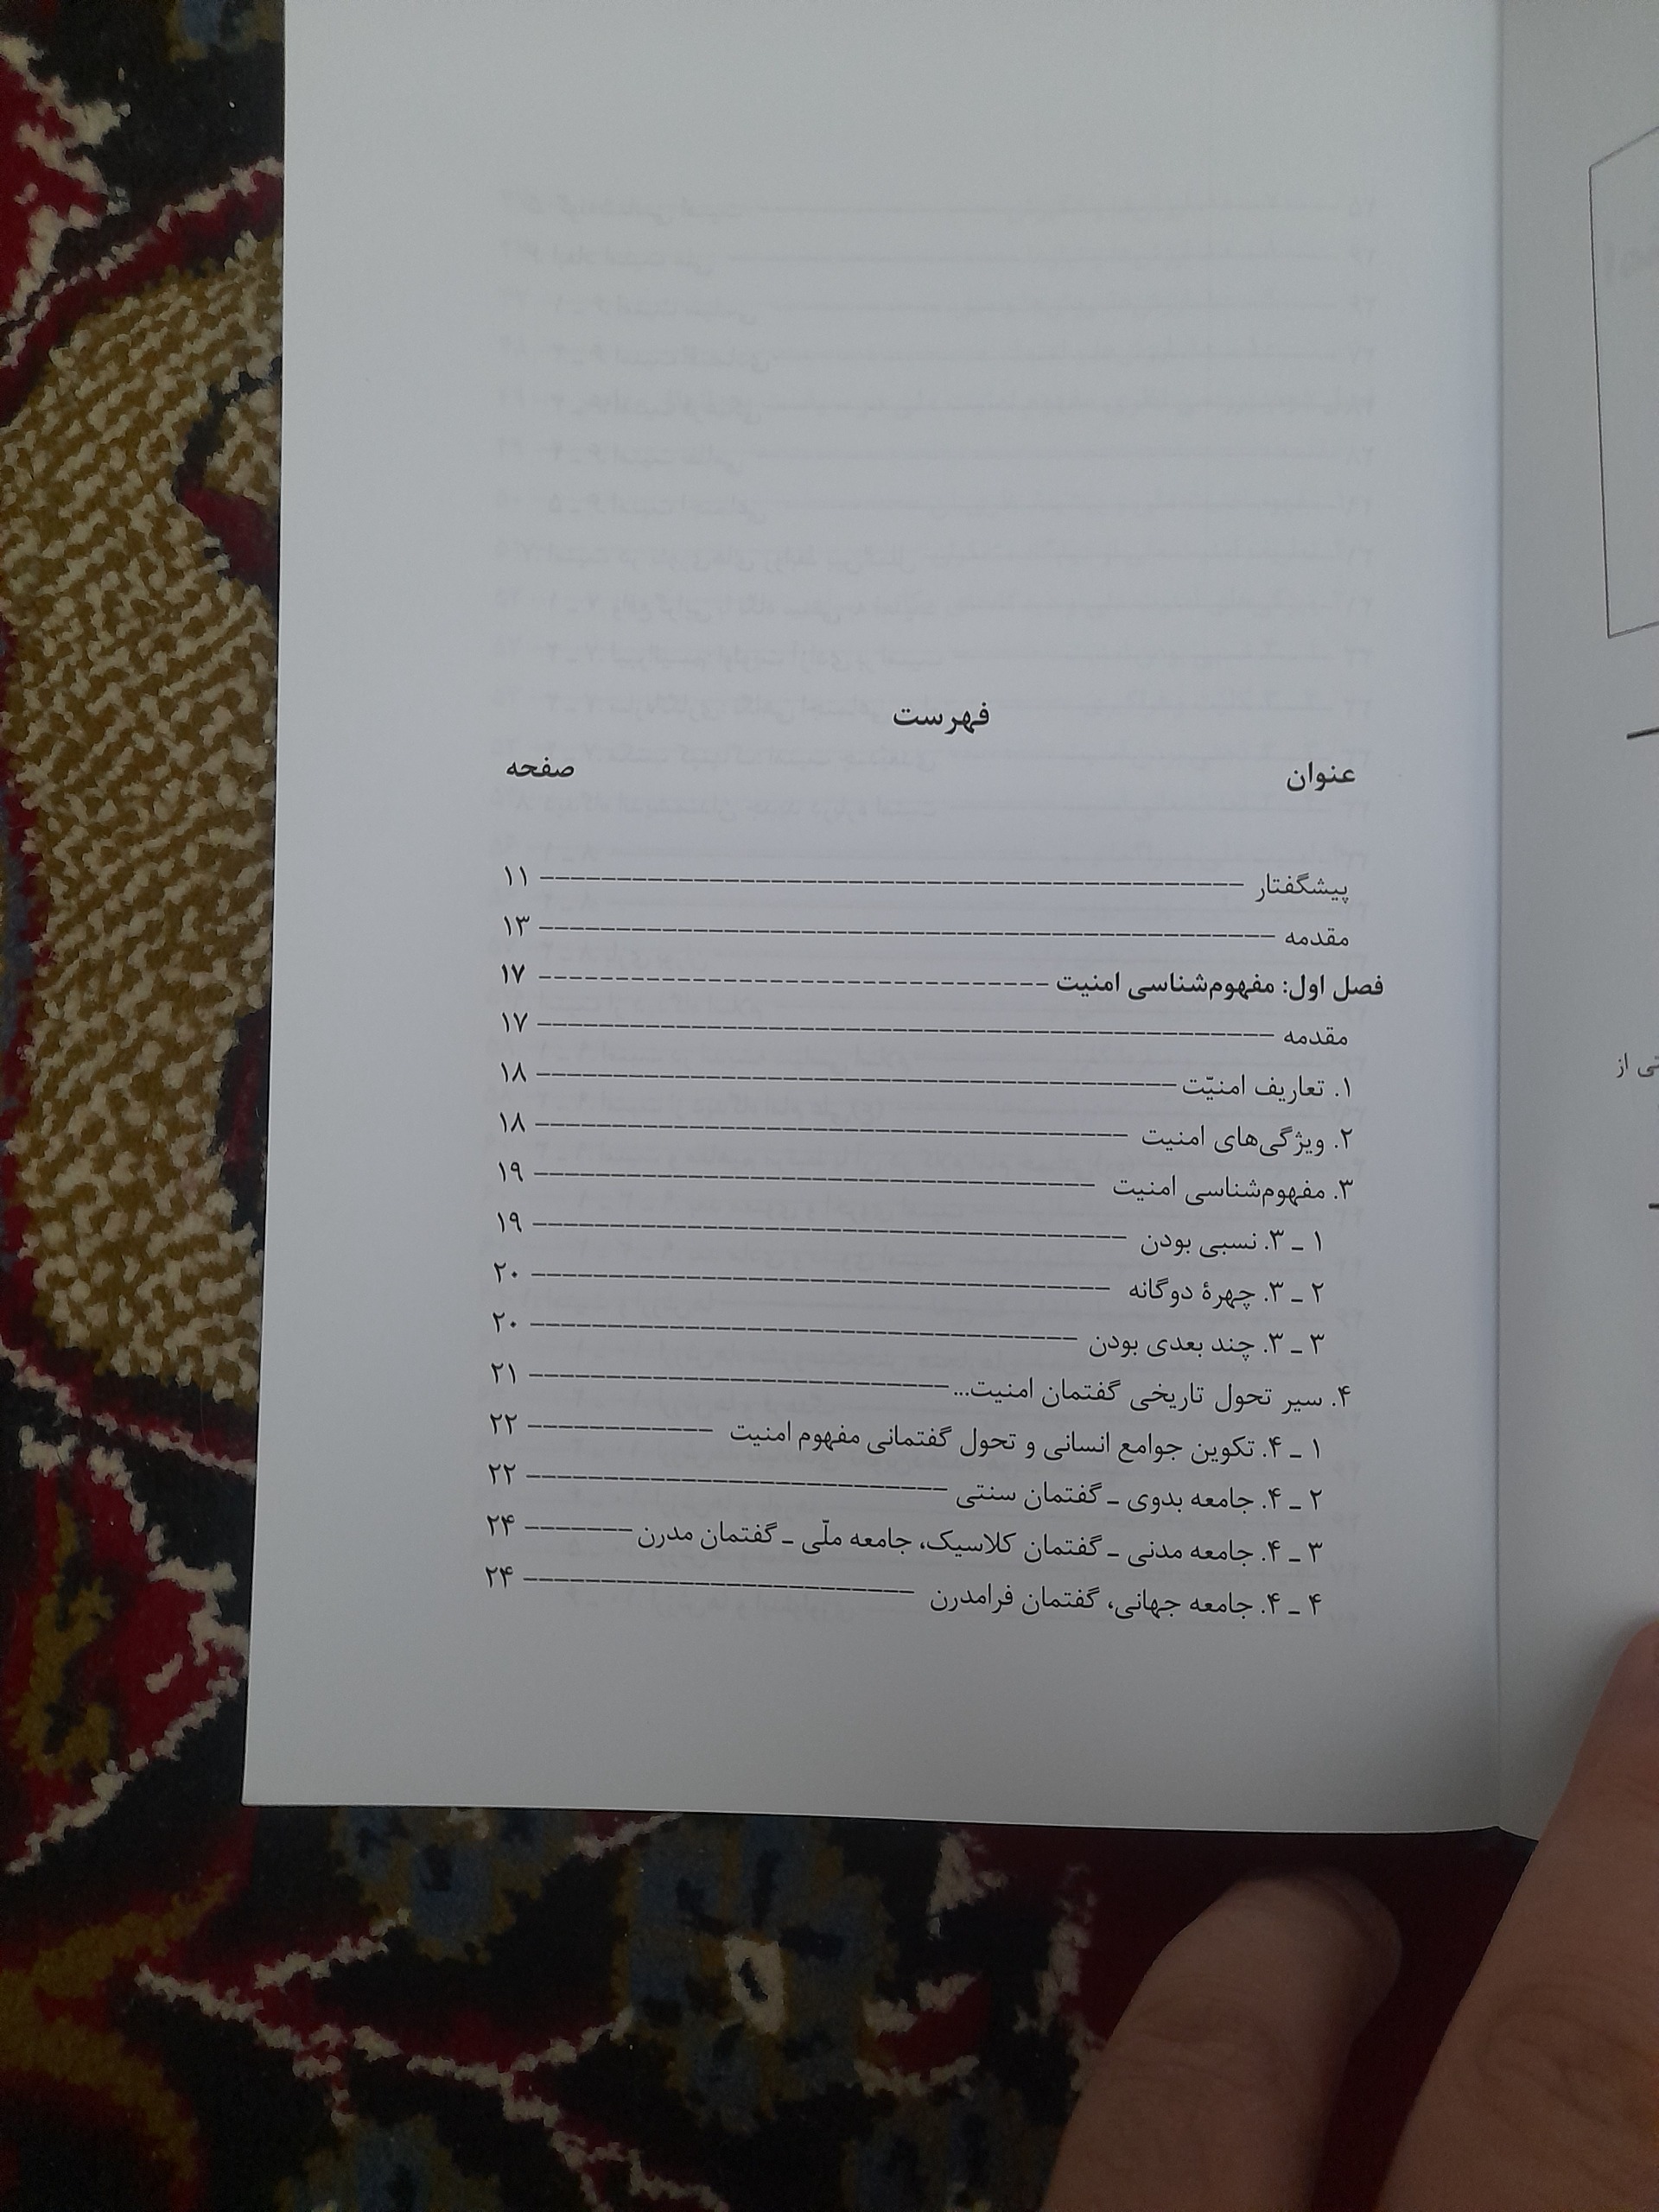 فهرست
عنوان صفحه
پیشگفتار ---------- ۱۱
مقدمه ---------- ۱۳
فصل اول: مفهوم‌شناسی امنیت ---------- ۱۷
مقدمه ---------- ۱۷
۱. تعاریف امنیّت ---------- ۱۸
۲. ویژگی‌های امنیت ---------- ۱۸
۳. مفهوم‌شناسی امنیت ---------- ۱۹
۱ ـ ۳. نسبی بودن ---------- ۱۹
۲ ـ ۳. چهرهٔ دوگانه ---------- ۲۰
۳ ـ ۳. چند بعدی بودن ---------- ۲۰
۴. سیر تحول تاریخی گفتمان امنیت... ---------- ۲۱
۱ ـ ۴. تکوین جوامع انسانی و تحول گفتمانی مفهوم امنیت ---------- ۲۲
۲ ـ ۴. جامعه بدوی ـ گفتمان سنتی ---------- ۲۲
۳ ـ ۴. جامعه مدنی ـ گفتمان کلاسیک، جامعه ملّی ـ گفتمان مدرن ---------- ۲۴
۴ ـ ۴. جامعه جهانی، گفتمان فرامدرن ---------- ۲۴